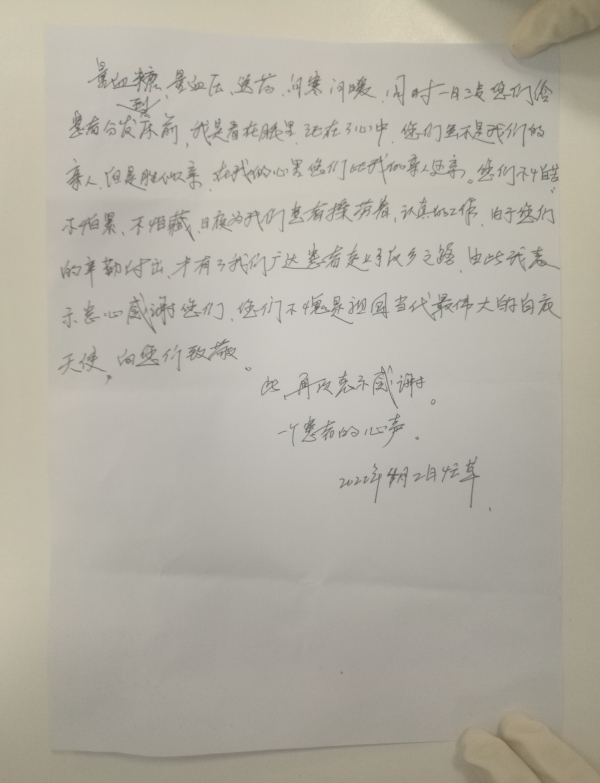 量血糖,量血压,送药,问寒问暖,同时一日三次您们给
患者分发床前,我是看在眼里,记在了心中,您们虽不是我们的
亲人,但是胜似亲,在我的心里您们比我们亲人还亲。您们不怕苦
不怕累、不怕藏,日夜为我们患者操劳着,认真的工作,由于您们
的辛勤付出,才有了我们广达患者走上了返乡之路,由此我表
示忠心感谢您们,您们不愧是祖国当代最伟大的白衣
天使,向您们致敬。
此,再次表示感谢。
一个患者的心声。
2022年4月2日